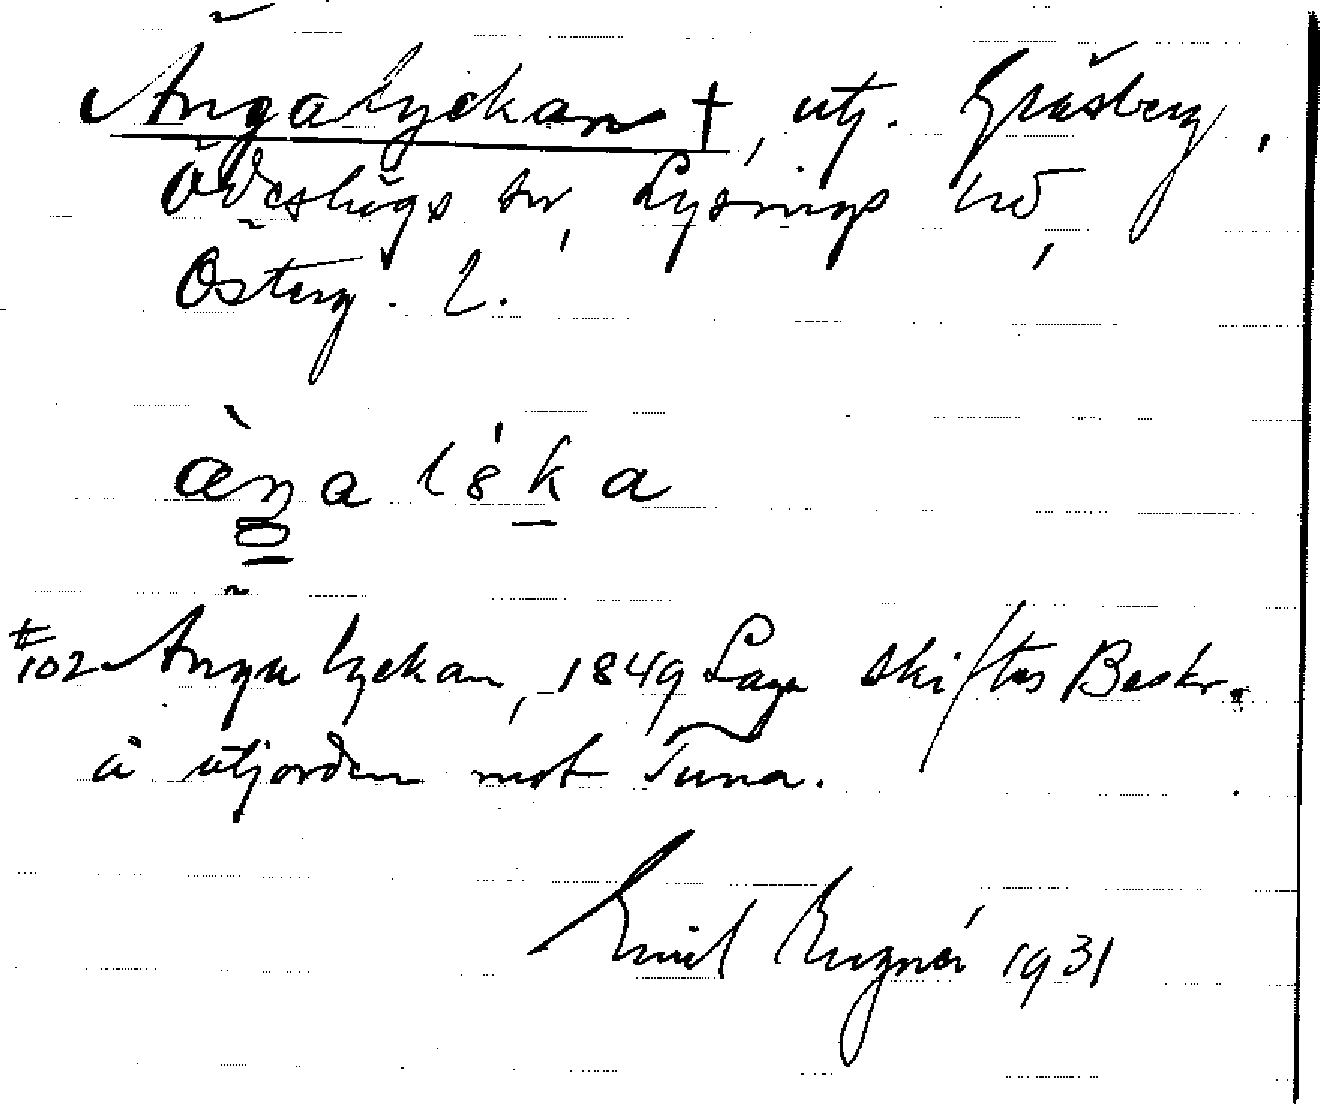 Ängalyckan †, utj. Gräsberg,
Ödeshögs sn, Lysings hd,
Österg. l.
ængalöka
#102 Ängalyckan, 1849 Laga skiftes Beskr.
å utjorden mot Tuna.
Emil 1931